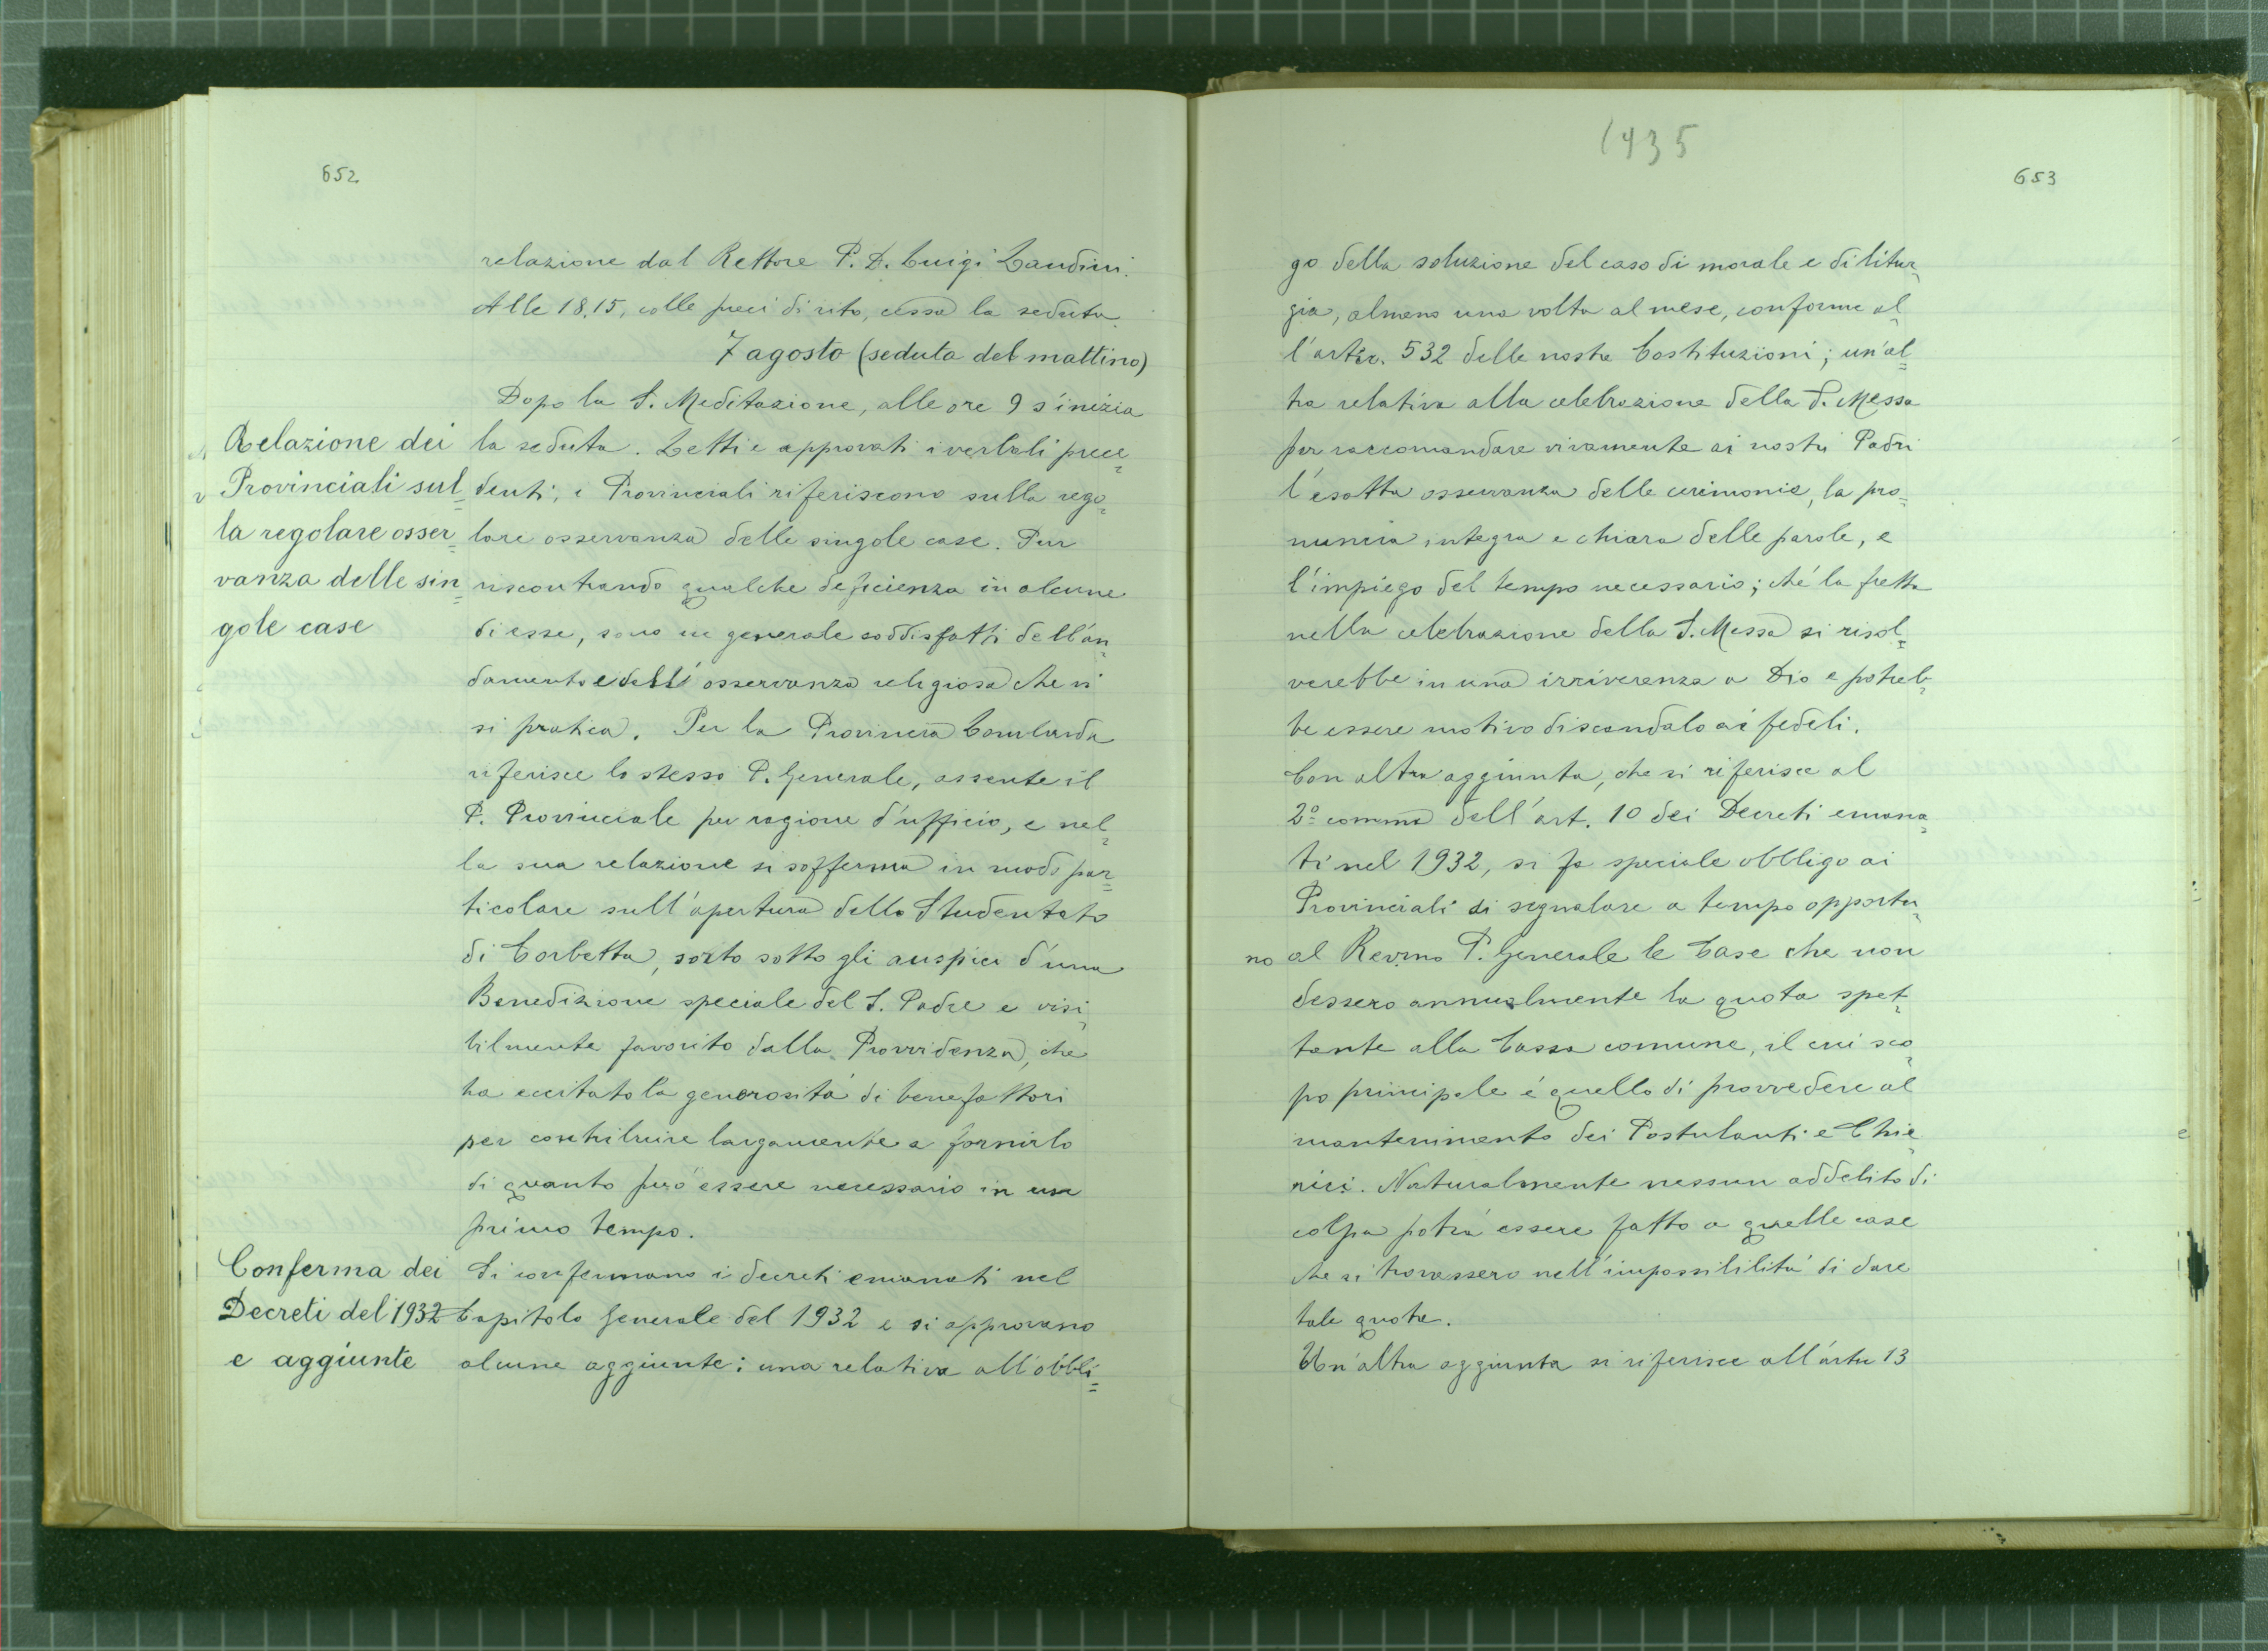 652
relazione dal Rettore P. D. Luigi Landini.
Alle 18,15, colle preci di rito, cessa la seduta.
7 agosto (seduta del mattino)
Dopo la S. Meditazione, alle ore 9 s'inizia
la seduta. Letti e approvati i verbali prece=
denti, i Provinciali riferiscono sulla rego=
lare osservanza delle singole case. Pur
riscontrando qualche deficienza in alcune
di esse, sono in generale soddisfatti dell'an=
damento e dell'osservanza religiosa che vi
si pratica. Per la Provincia Lombarda
riferisce lo stesso P. Generale, assente il
P. Provinciale per ragione d'ufficio, e nel=
la sua relazione si sofferma in modo par=
ticolare sull'apertura dello Studentato
di Corbetta, sorto sotto gli auspici d'una
Benedizione speciale del S. Padre e visi=
bilmente favorito dalla Provvidenza, che
ha eccitato la generosità di benefattori
per contribuire largamente a fornirlo
di quanto può essere necessario in un
primo tempo.
Si confermano i decreti emanati nel
Capitolo Generale del 1932 e si approvano
alcune aggiunte: una relativa all'obbli=
Relazione dei
Provinciali sul=
la regolare osser=
vanza delle sin=
gole case
Conferma dei
Decreti del 1932
e aggiunte
1935
653
go della soluzione del caso di morale e di litur=
gia, almeno una volta al mese, conforme al=
l'artic. 532 delle nostre Costituzioni; un'al=
tra relativa alla celebrazione della S. Messa
per raccomandare vivamente ai nostri Padri
l'esatta osservanza delle cerimonie, la pro=
nuncia integra e chiara delle parole, e
l'impiego del tempo necessario; ché la fretta
nella celebrazione della S. Messa si risol=
verebbe in una irriverenza a Dio e potreb=
be essere motivo di scandalo ai fedeli.
Con altra aggiunta, che si riferisce al
2º comma dell'art. 10 dei Decreti emana=
ti nel 1932, si fa speciale obbligo ai
Provinciali di segnalare a tempo opportu=
no al Rev.mo P. Generale le Case che non
dessero annualmente la quota spet=
tante alla Cassa comune, il cui sco=
po principale é quello di provvedere al
mantenimento dei Postulanti e Chie=
rici. Naturalmente nessun addebito di
colpa potrà essere fatto a quelle case
che si trovassero nell'impossibilità di dare
tale quota.
Un'altra aggiunta si riferisce all'artic 13